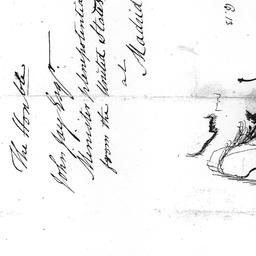 The Honble
John Jay Esqr
Minister plenipotentia
from the United States
at Madrid